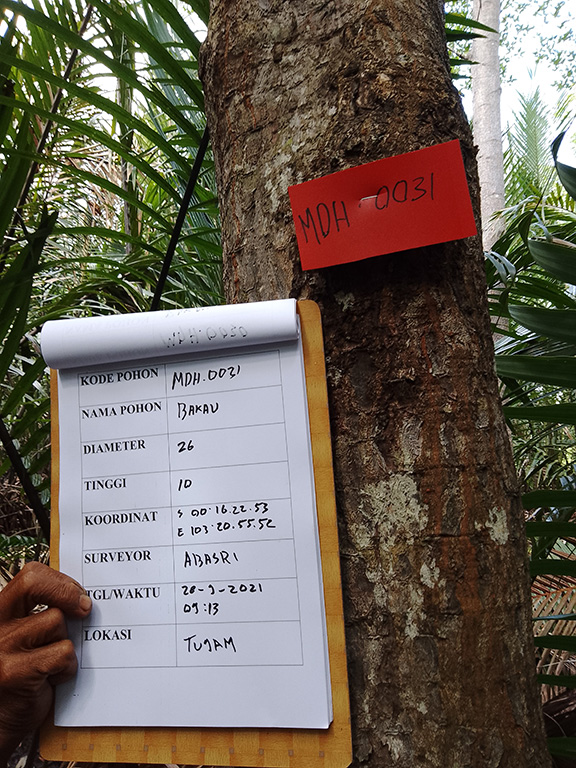 MDH 0031
KODE POHON MDH.0031
NAMA POHON BAKAU
DIAMETER 26
TINGGI 10
KOORDINAT S 00.16.22.53
E 103.20.55.52
SURVEYOR ABASRI
TGL/WAKTU 28-9-2021
09:13
LOKASI TUJAM